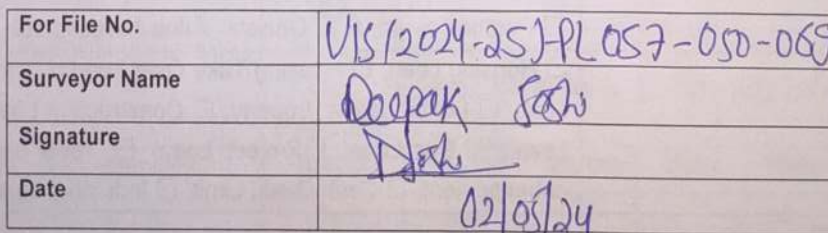 For File No. VIS/2024-25)-PL057-050-065
Surveyor Name Deepak Joshi
Signature DJoshi
Date 02/05/24